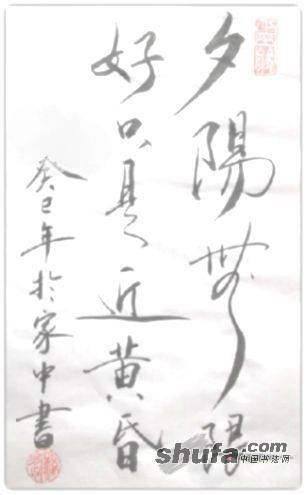 夕陽無限
好只是近黄昏
癸巳年於家中書
shufa.com
中国书法网